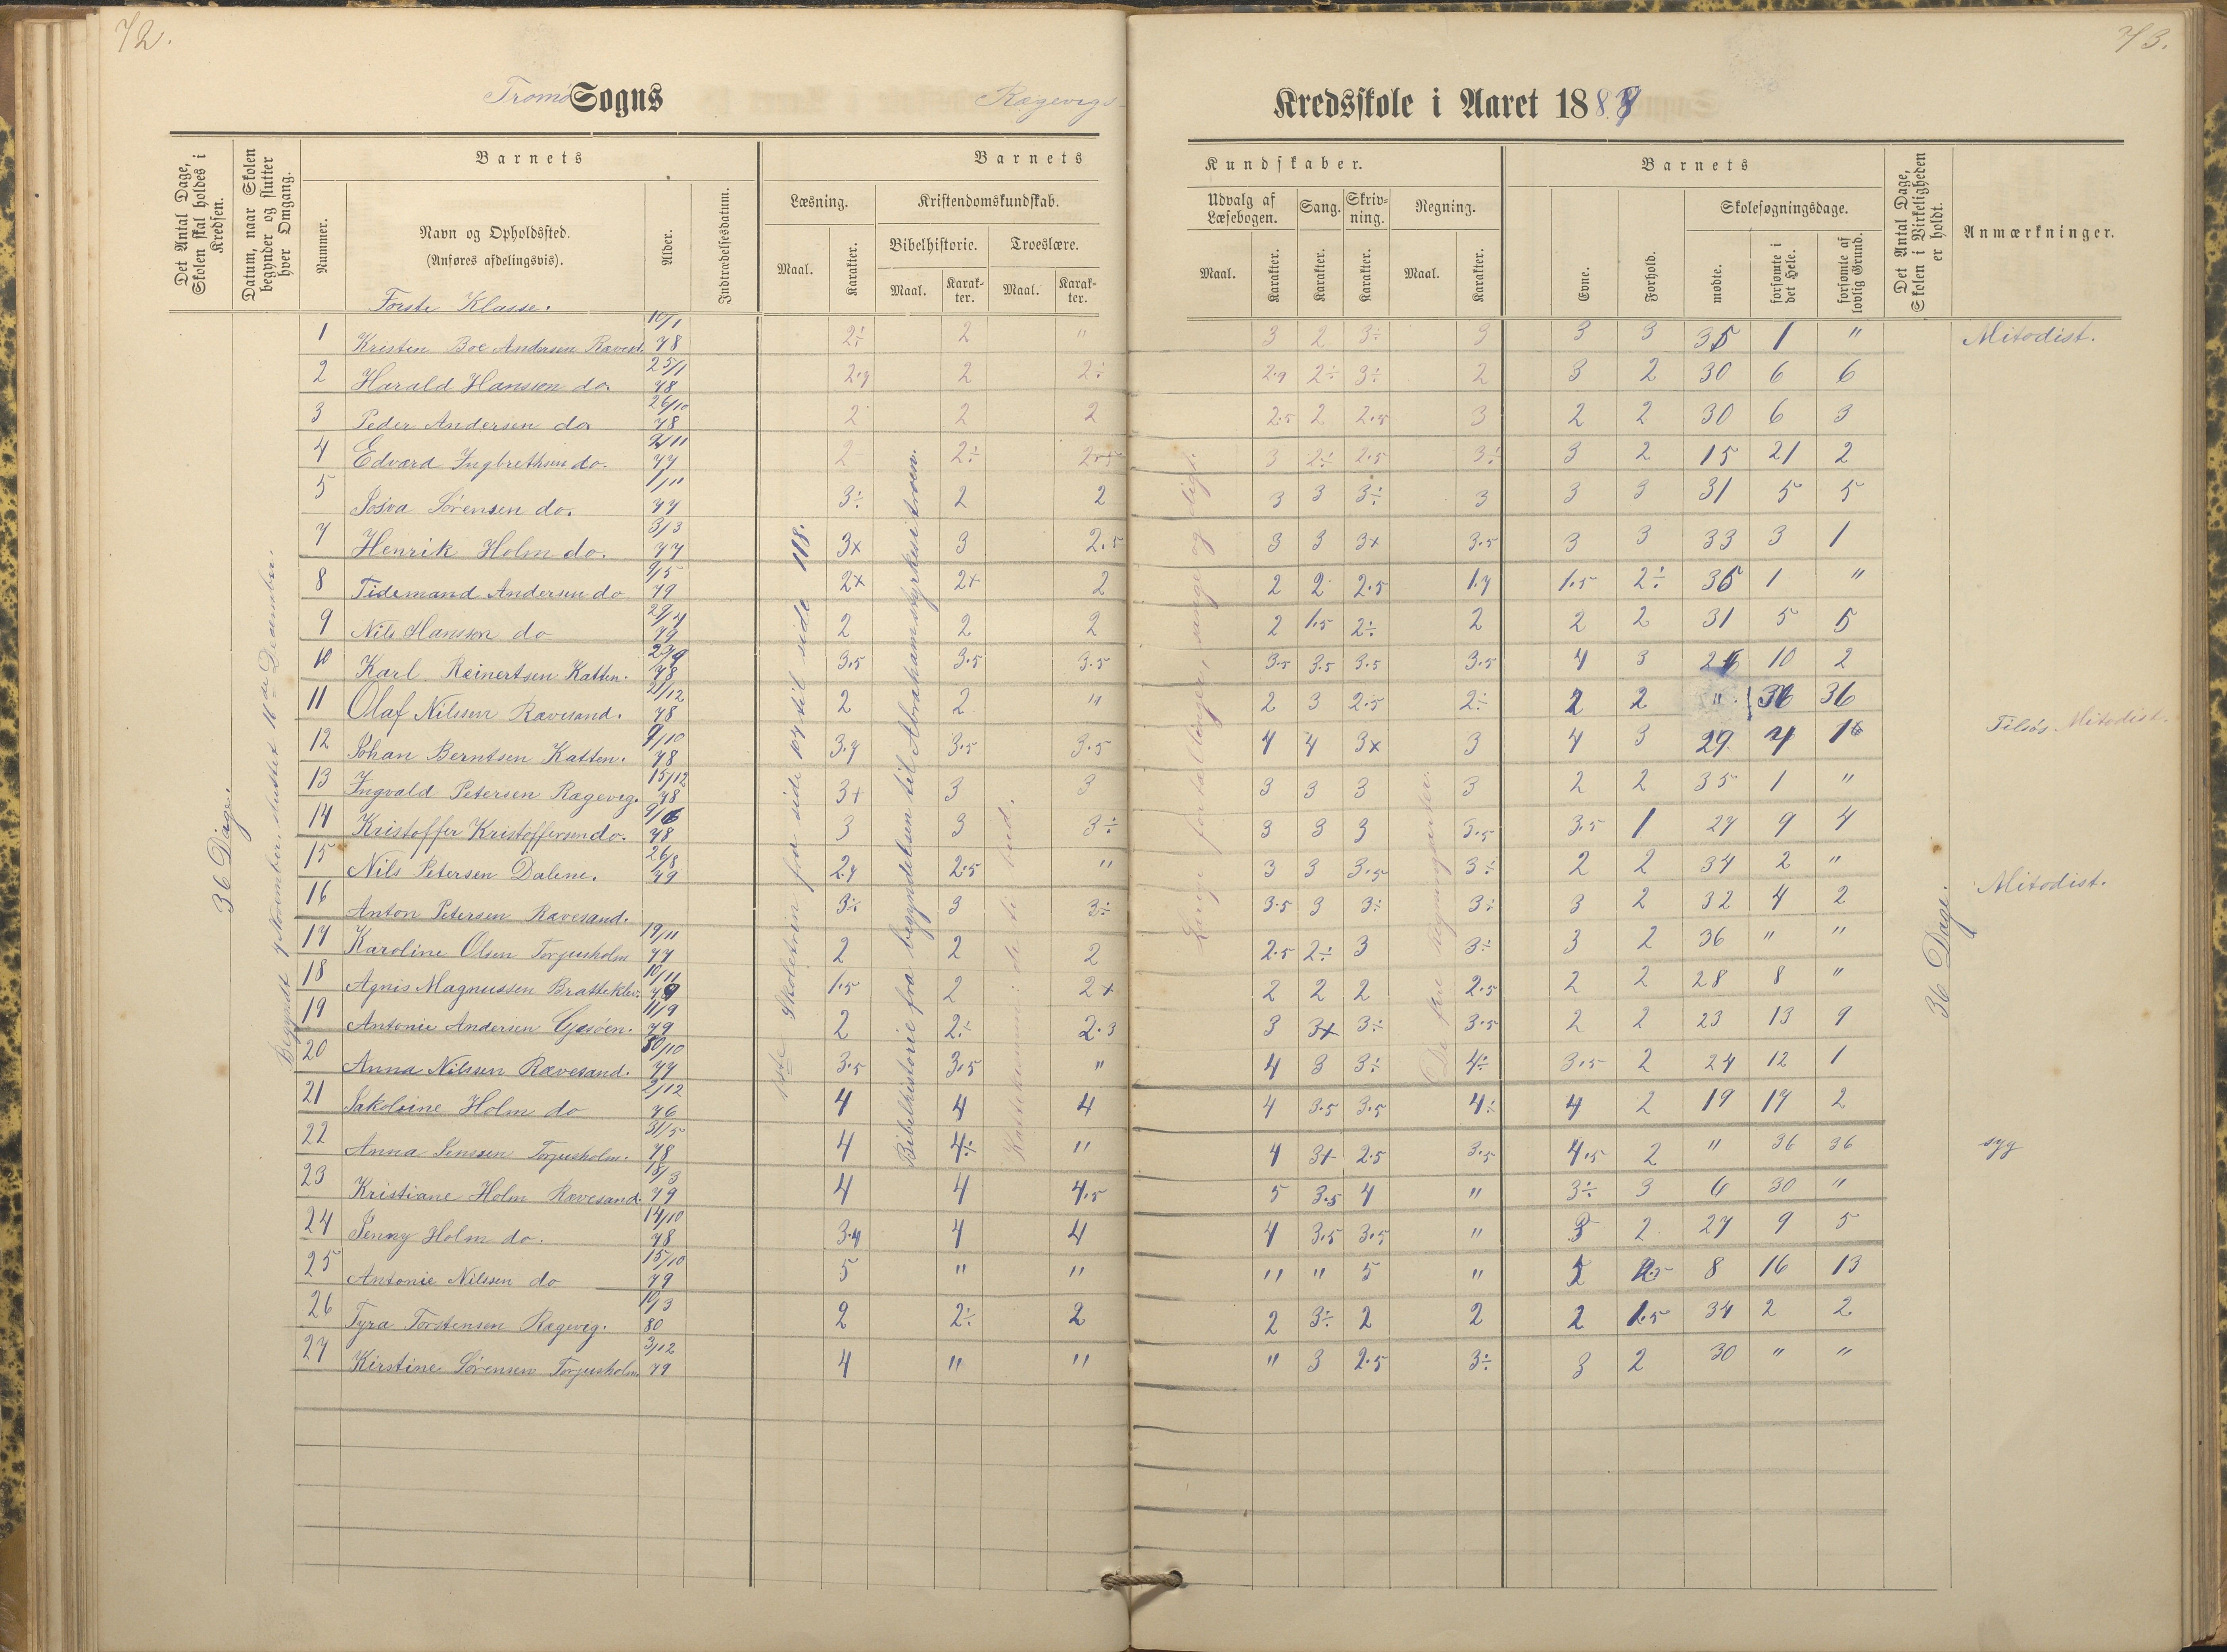 72.
73.
Tromø Sogns Rægevigs Kredsskole i Aaret 188
Det Antal Dage, Skolen skal holdes i Kredsen.
Datum, naar Skolen begynder og slutter hver Omgang.
Barnets
Nummer.
Navn og Opholdssted.
(Anføres afdelingsvis).
Alder.
Indtrædelsesdatum.
Barnets Kundskaber.
Læsning.
Maal. Karakter.
Kristendomskundskab.
Bibelhistorie.
Maal. Karakter.
Troeslære.
Maal. Karakter.
Udvalg af Læsebogen.
Maal. Karakter.
Sang. Karakter.
Skrivning. Karakter.
Regning.
Maal. Karakter.
Barnets
Evne. Forhold.
Skolesøgningsdage.
mødte. forsømte i det Hele. forsømte af lovlig Grund.
Det Antal Dage, Skolen i Virkeligheden er holdt.
Anmærkninger.
Første Klasse.
36 Dage.
Begyndt November, sluttet de December.
1ste Skoletrin fra side til side 118.
Bibelhistorie fra begyndelsen til Abrahams styrkes i troen.
Katekismus: de ti bud.
Lange fortællinger, sange og digt.
De fire regningsarter.
36 Dage.
1 Kristen Boe Andersen Ravest. 10/1 78 2÷ 2 " 3 2 3÷ 3 3 3 35 1 " Mitodist.
2 Harald Hansson do. 25/1 78 2.7 2 2÷ 2.7 2÷ 3÷ 2 3 2 30 6 6
3 Peder Andersen do 26/10 78 2 2 2 2.5 2 2.5 3 2 2 30 6 3
4 Edvard Ingbrethsen do. 2/11 77 2 2÷ 3 2÷ 2.5 3÷ 3 2 15 21 2
5 Josva Sørensen do. 1/11 77 3÷ 2 2 3 3 3÷ 3 3 3 31 5 5
7 Henrik Holm do. 3/3 77 3x 3 2.5 3 3 3x 3.5 3 3 33 3 1
8 Tidemand Andersen do 9/5 79 2x 2+ 2 2 2 2.5 1.7 1.5 2÷ 35 1 "
9 Nils Hansson do 29/7 79 2 2 2 2 1.5 2÷ 2 2 2 31 5 5
10 Karl Reinertsen Katten. 29/9 78 3.5 3.5 3.5 3.5 3.5 3.5 3.5 4 3 26 10 2
11 Olaf Nilssen Ravesand. 21/12 78 2 2 " 2 3 2.5 2÷ 2 2 " 36 36 Tilsøs Mitodist.
12 Johan Berntsen Katten. 9/10 78 3.7 3.5 3.5 4 4 3x 3 4 3 29 7
13 Ingvald Petersen Rægevig. 15/12 78 3+ 3 3 3 3 3 3 2 2 35 1 "
14 Kristoffer Kristoffersen do. 9/6 78 3 3 3÷ 3 3 3 3.5 3.5 1 27 9 7
15 Nils Petersen Dalene. 26/8 79 2.7 2.5 " 3 3 3.5 3÷ 2 2 34 2 " Mitodist.
16 Anton Petersen Ravesand. 3÷ 3 3÷ 3.5 3 3÷ 3÷ 3 2 32 4 2
17 Karoline Olsen Torjusholm 19/11 77 2 2 2 2.5 2÷ 3 3÷ 3 2 36 " "
18 Agnis Magnussen Bratteklev. 10/11 79 1.5 2 2+ 2 2 2 2.5 2 2 28 8 "
19 Antonie Andersen Gjesøen. 11/9 79 2 2÷ 2.3 3 3+ 3÷ 3.5 2 2 23 13 9
20 Anna Nilssen Ravesand. 30/10 77 3.5 3.5 " 4 3 3÷ 4÷ 3.5 2 24 12 1
21 Jakobine Holm do 2/12 76 4 4 4 4 3.5 3.5 4÷ 4 2 19 17 2
22 Anna Jenssen Torjusholm. 31/5 78 4 4÷ " 4 3+ 2.5 3.5 4.5 2 " 36 36 syg
23 Kristiane Holm Ravesand. 18/3 79 4 4 4.5 5 3.5 4 " 3÷ 3 6 30 "
24 Jenny Holm do. 14/10 78 3.7 4 4 4 3.5 3.5 " 3 2 27 9 5
25 Antonie Nilssen do 15/10 79 5 " " " " 5 " 8 16 13
26 Tyra Torstensen Rægevig. 10/3 80 2 2÷ 2 2 3÷ 2 2 2 1.5 34 2 2
27 Kirstine Sørensen Torjusholm 3/12 79 4 " " " 3 2.5 3÷ 3 2 30 " "